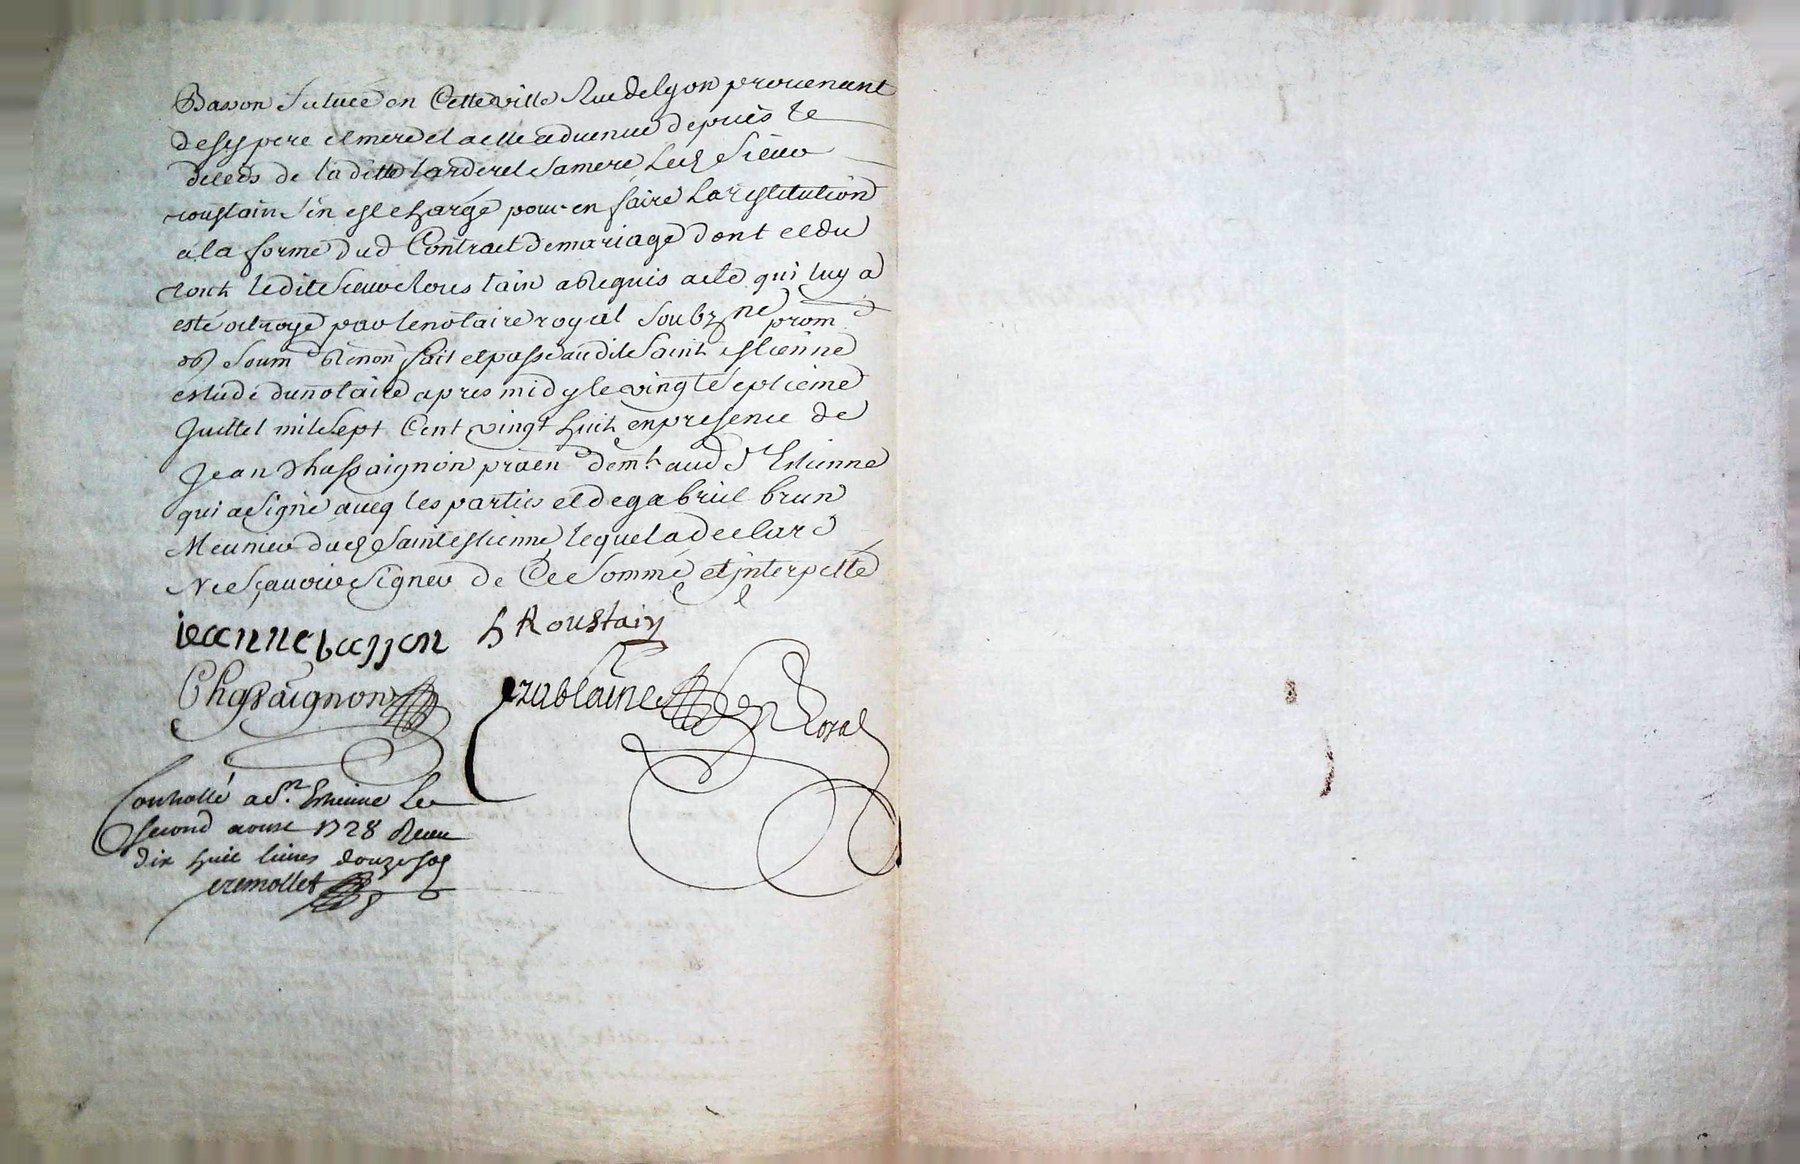 Basson scituée en Cette ville Rue de lyon provenant
de ses pere et mere et a elle advenue depuis le
deceds de la ditte larderet sa mere Led Sieur
roustain s'en est chargé pour en faire La restitution
a la forme dud Contract de mariage dont et du
tout ledit Sieur roustain a Requis acte qui luy a
esté octroyé par le notaire royal Soubzné prom
obj Soum Renon fait et passé audit Saint Estienne
estude du notaire apres midy le vingt septieme
Juillet mil sept Cent vingt huit en presence de
Jean Chassaignon praen demt aud St Estienne
qui a signé avecq les parties et de gabriel brun
Meunier dud Saint estienne lequel a declaré
Ne sçavoir signer de Ce sommé et jnterpellé
jeanne basson h Roustain
Chassaignon crablaine Nore Royal
Controllé a St. Etienne Le
second aoust 1728 Receu
dix huit livres douze sols
cremollet